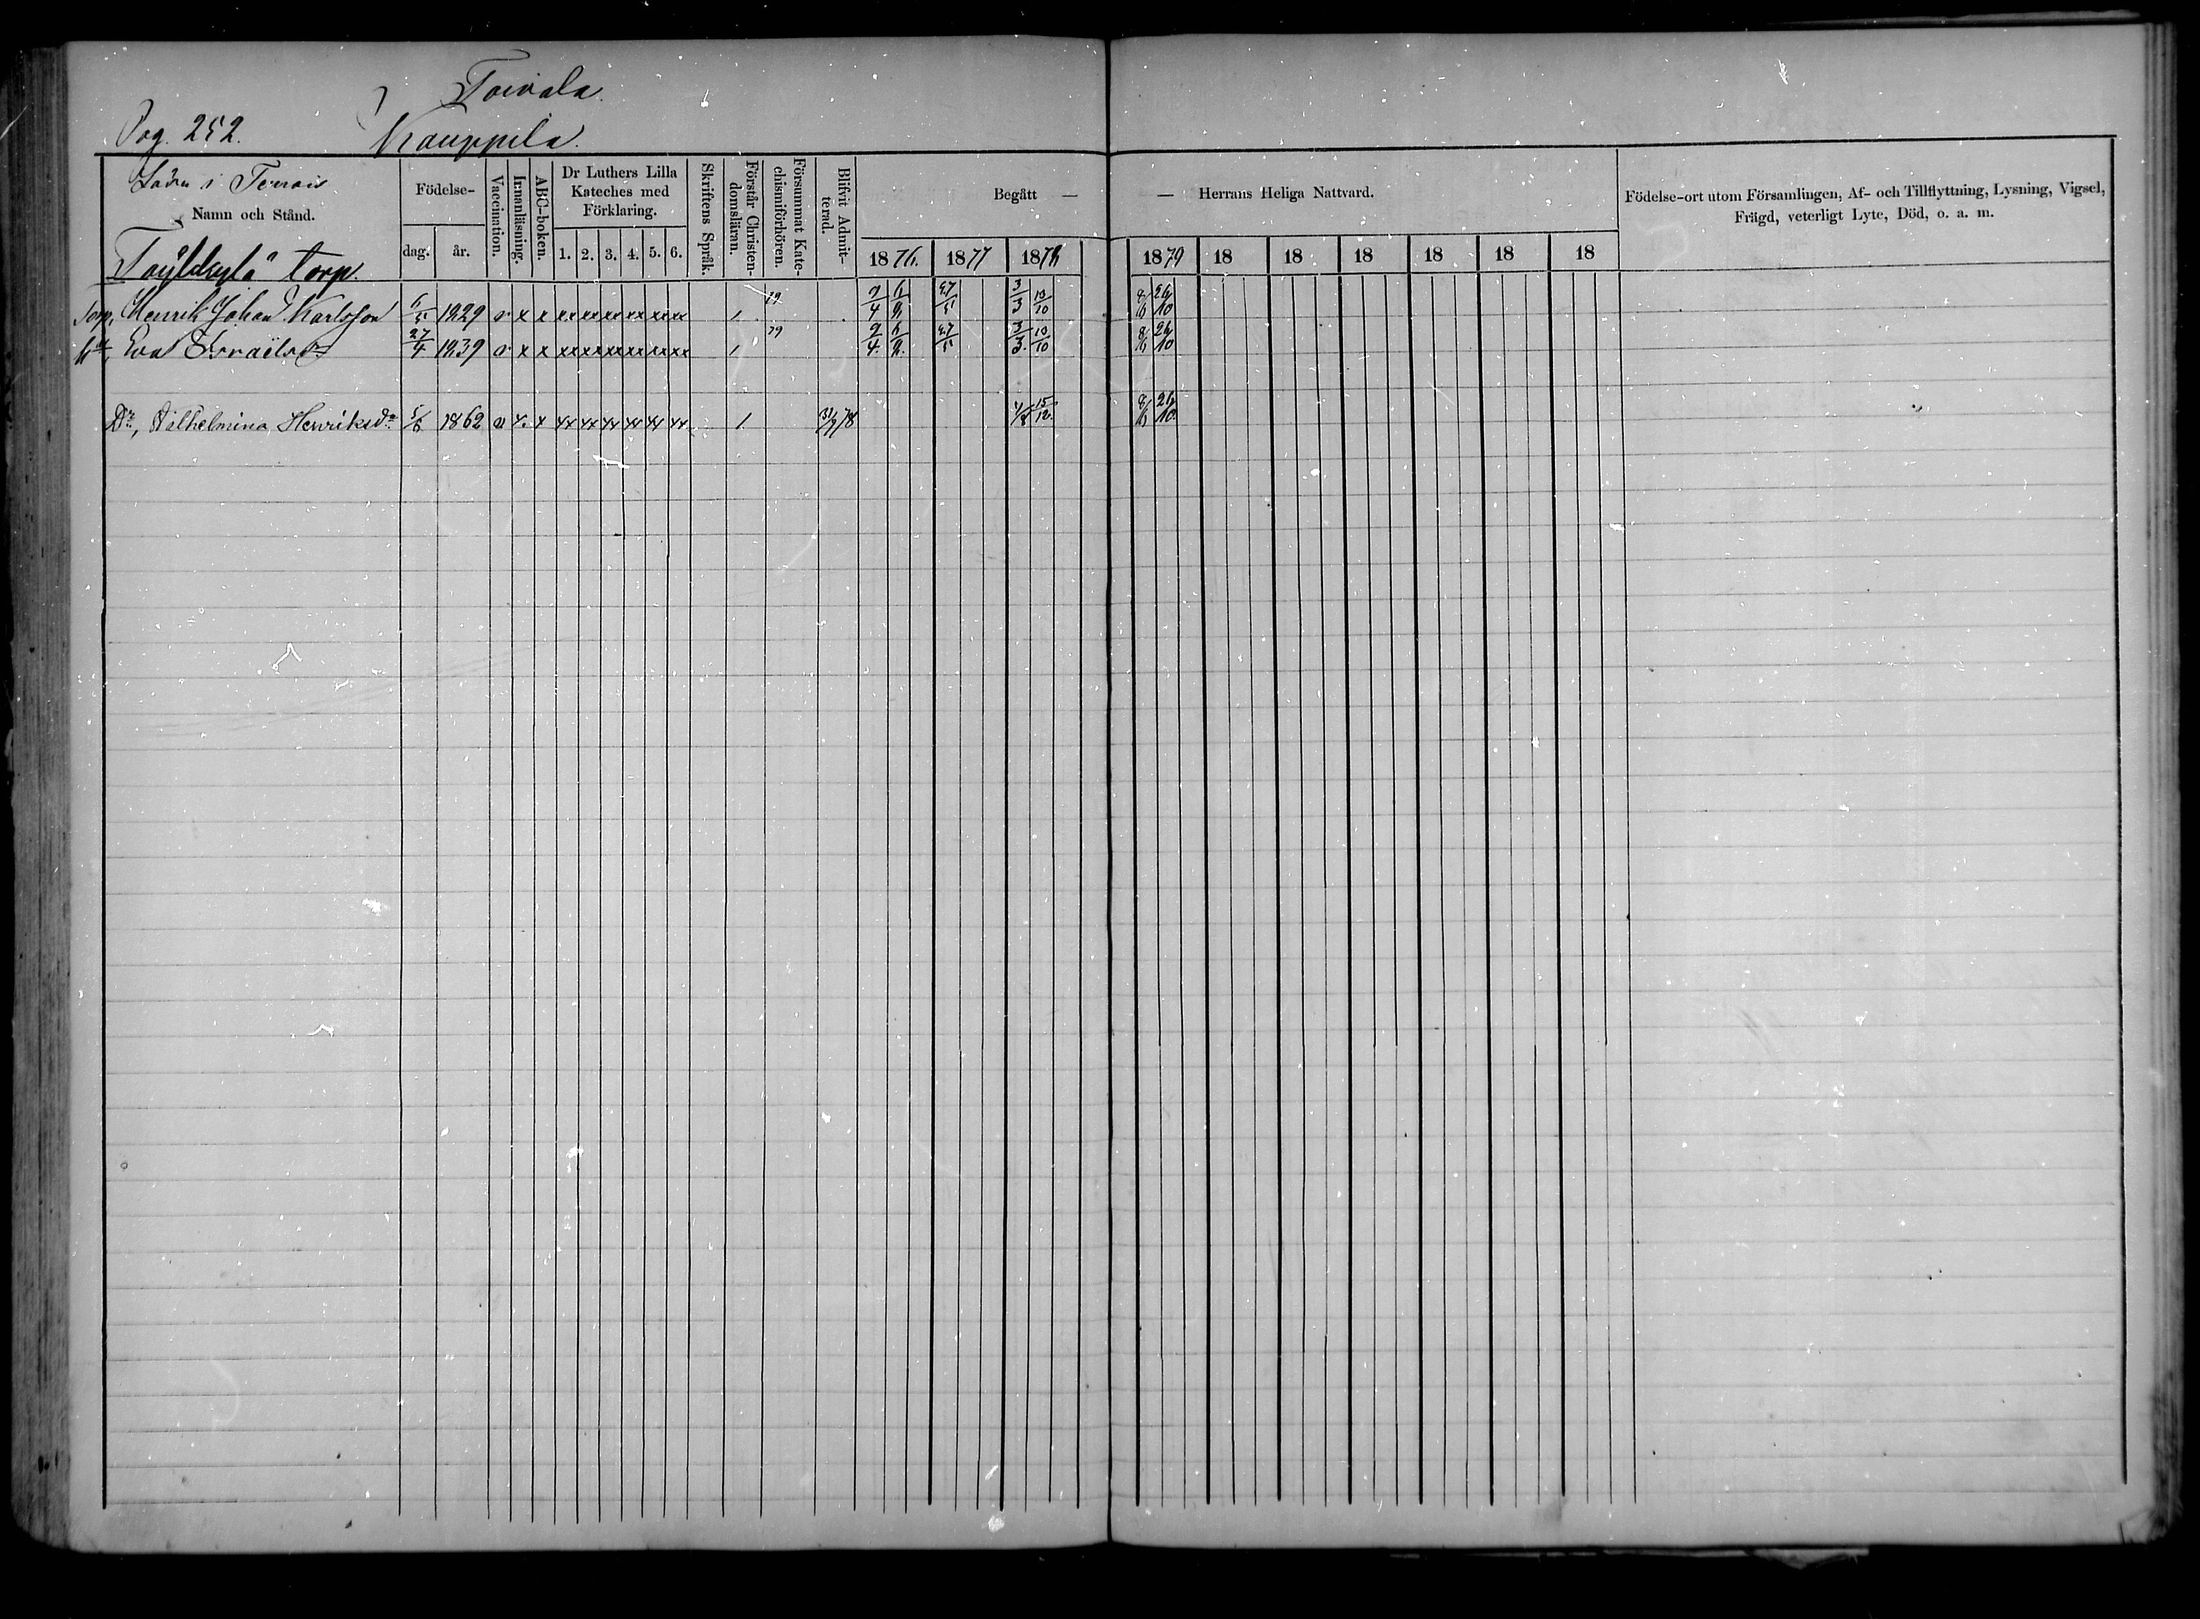 Toivala.
Pag. 252. Kauppila.
Namn och Stånd.
Födelse-
dag. år.
Vaccination.
Innanläsning.
ABC-boken.
Dr Luthers Lilla Kateches med Förklaring.
1. 2. 3. 4. 5. 6.
Skriftens Språk.
Förstår Christendomsläran.
Försummat Katechismiförhören.
Blifvit Admitterad.
Begått — — Herrans Heliga Nattvard.
1876. 1877 1878 1879 18 18 18 18 18 18
Födelse-ort utom Församlingen, Af- och Tillflyttning, Lysning, Vigsel,
Frägd, veterligt Lyte, Död, o. a. m.
torp.
Torp. Henrik Johan Karlsson 6/5 1829 v x x xx xx xx xx xx xx / 79 3/3 10/10 26/10
Eva Israelsdr 27/4 1839 v x x xx xx xx xx xx xx / 79 3/3. 10/10 26/10
Dr, Vilhelmina Henriksdr 5/6 1862 v x x xx xx xx xx xx xx / 15/12. 26/10.